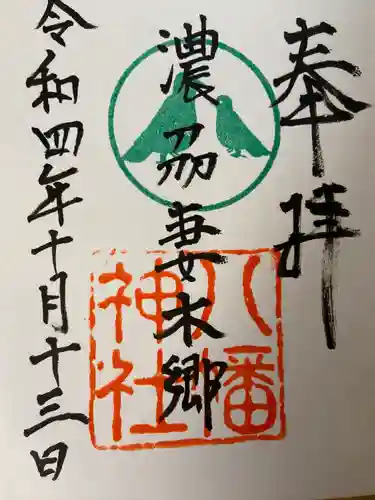 奉拝
濃刕妻木郷
八幡神社
令和四年十月十三日